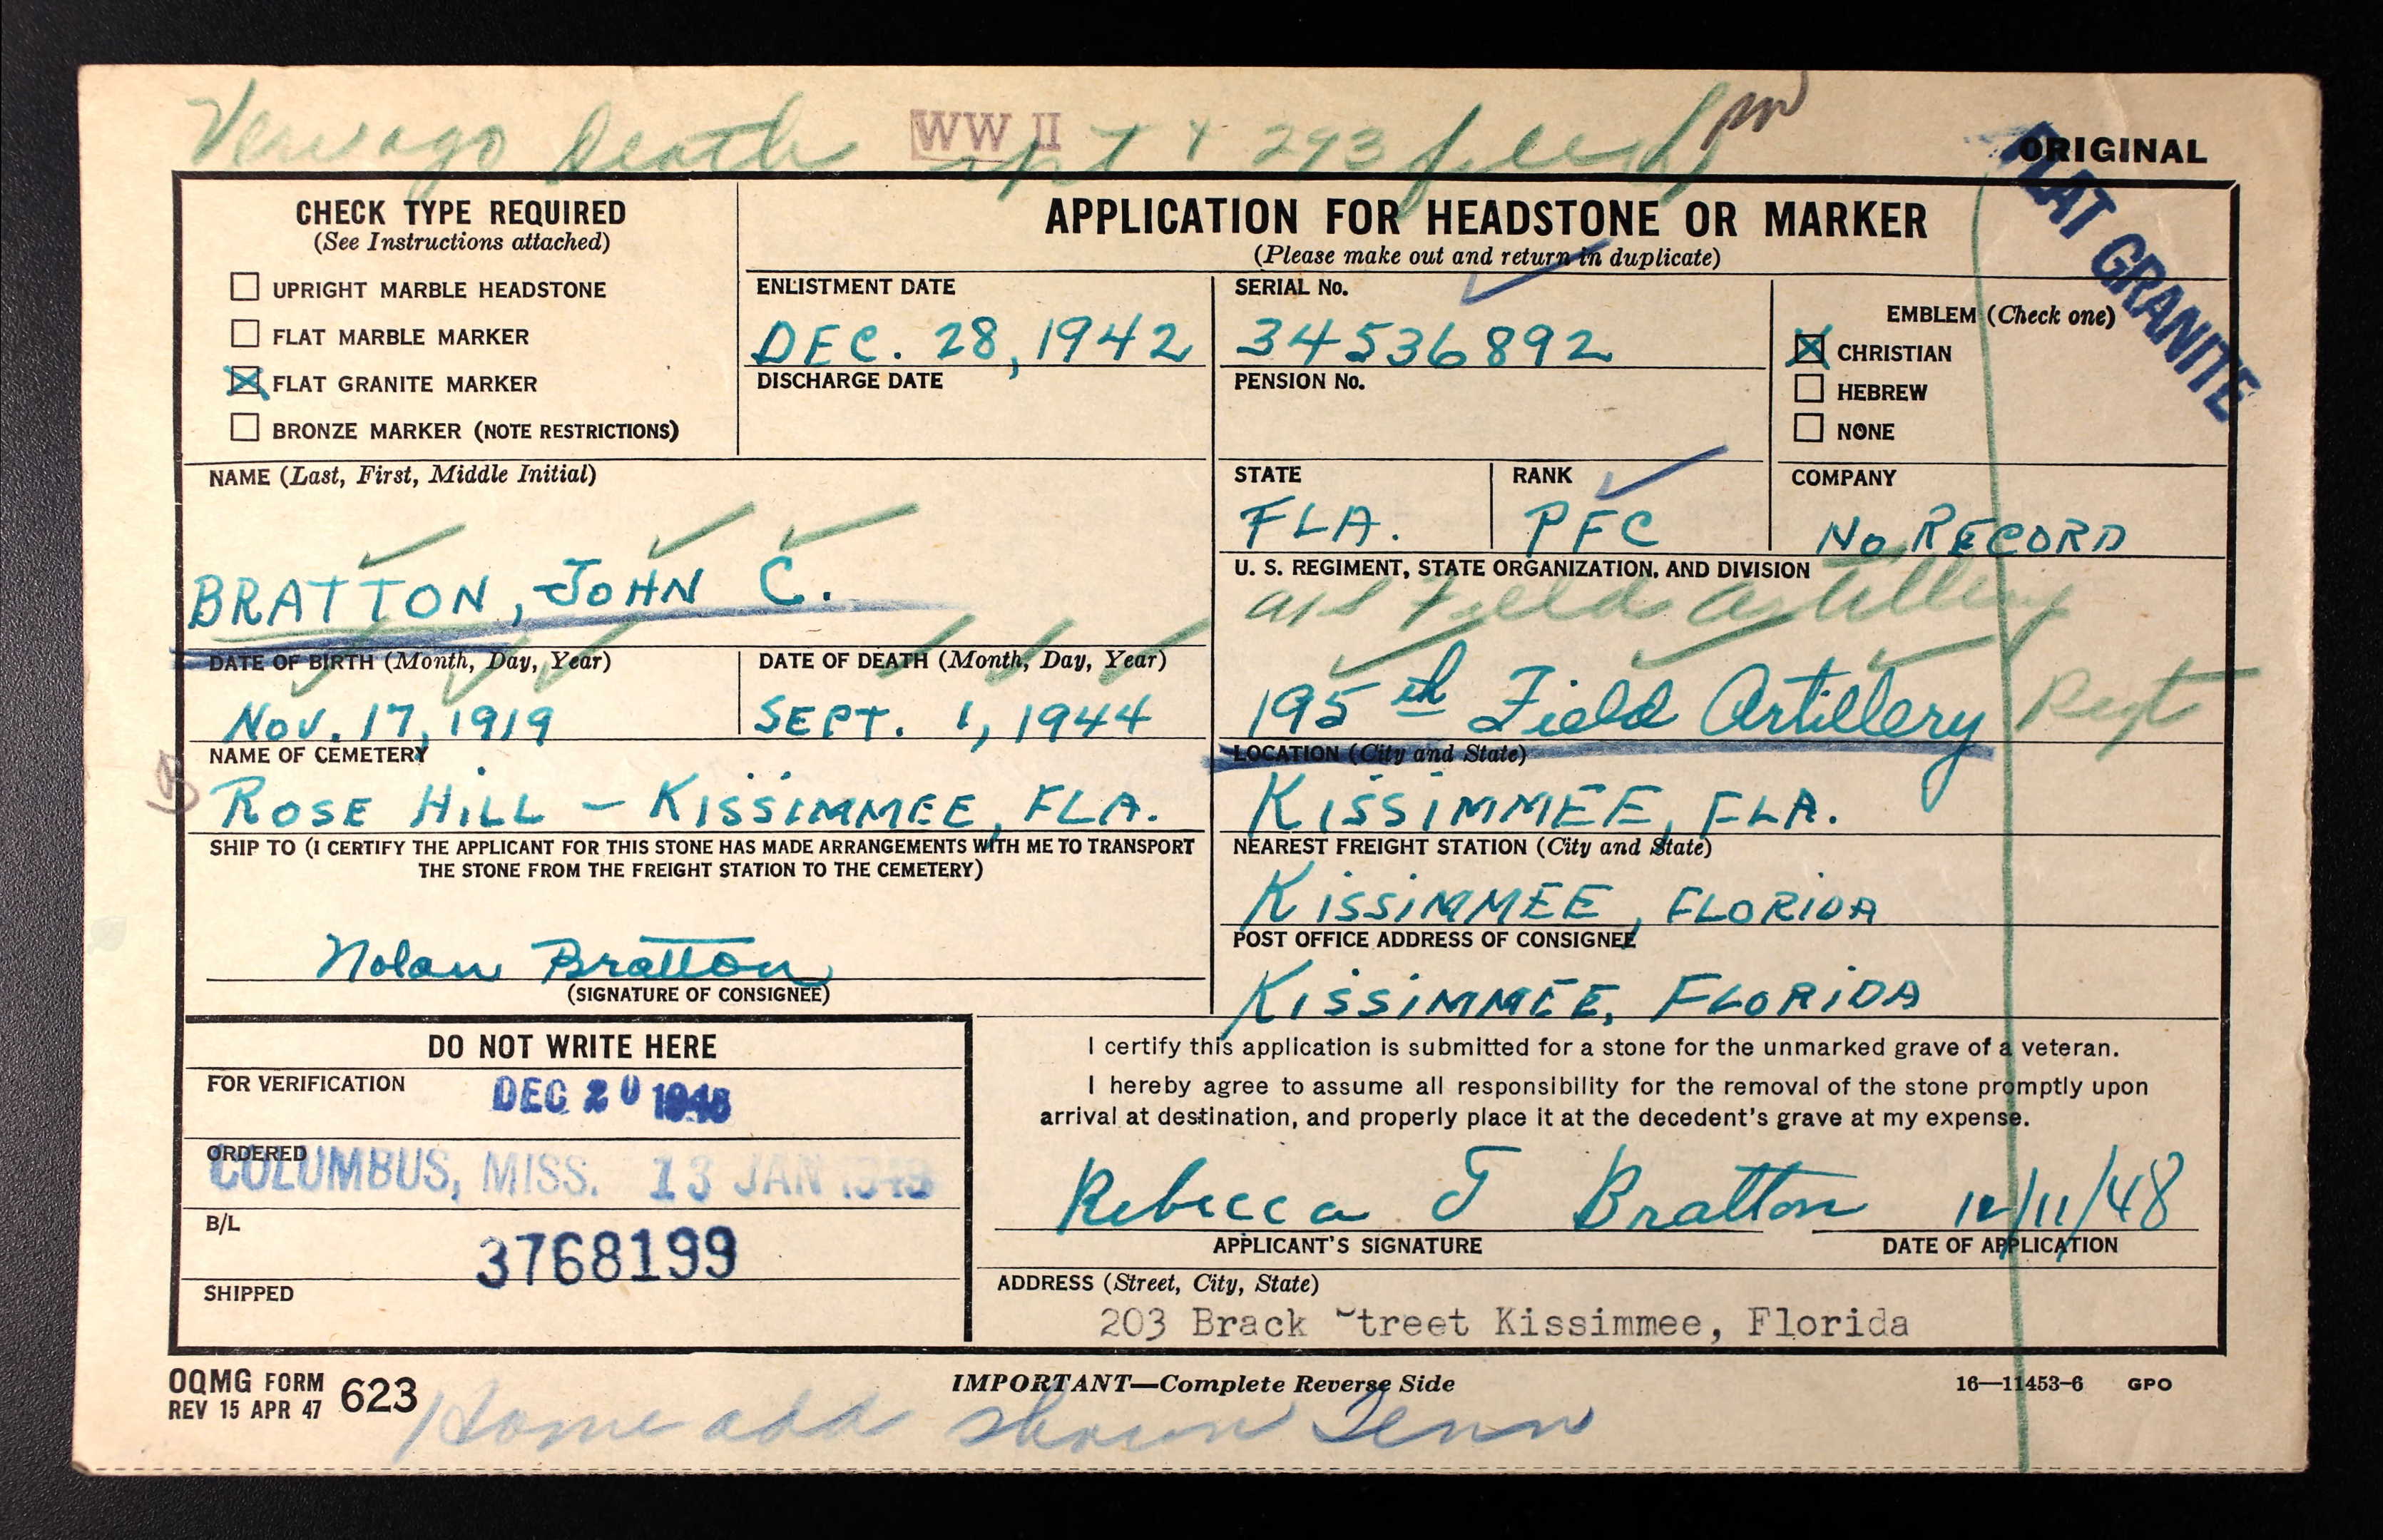 Death WW II rpt + 293 filed
ORIGINAL
FLAT GRANITE
CHECK TYPE REQUIRED
(See Instructions attached)
UPRIGHT MARBLE HEADSTONE
FLAT MARBLE MARKER
FLAT GRANITE MARKER
BRONZE MARKER (NOTE RESTRICTIONS)
APPLICATION FOR HEADSTONE OR MARKER
(Please make out and return in duplicate)
ENLISTMENT DATE
DEC. 28, 1942
DISCHARGE DATE
SERIAL No.
34536892
PENSION No.
EMBLEM (Check one)
CHRISTIAN
HEBREW
NONE
NAME (Last, First, Middle Initial)
BRATTON, JOHN C.
STATE
FLA.
RANK
PFC
COMPANY
NO RECORD
U. S. REGIMENT, STATE ORGANIZATION, AND DIVISION
Field Artillery
195th Field Artillery Regt
DATE OF BIRTH (Month, Day, Year)
NOV. 17, 1919
DATE OF DEATH (Month, Day, Year)
SEPT. 1, 1944
NAME OF CEMETERY
ROSE HILL – KISSIMMEE, FLA.
LOCATION (City and State)
KISSIMMEE, FLA.
SHIP TO (I CERTIFY THE APPLICANT FOR THIS STONE HAS MADE ARRANGEMENTS WITH ME TO TRANSPORT
THE STONE FROM THE FREIGHT STATION TO THE CEMETERY)
Nolan Bratton
(SIGNATURE OF CONSIGNEE)
NEAREST FREIGHT STATION (City and State)
KISSIMMEE, FLORIDA
POST OFFICE ADDRESS OF CONSIGNEE
KISSIMMEE, FLORIDA
DO NOT WRITE HERE
FOR VERIFICATION
DEC 20 1948
ORDERED
COLUMBUS, MISS. 13 JAN 1949
B/L
3768199
SHIPPED
I certify this application is submitted for a stone for the unmarked grave of a veteran.
I hereby agree to assume all responsibility for the removal of the stone promptly upon
arrival at destination, and properly place it at the decedent's grave at my expense.
Rebecca T Bratton 12/11/48
APPLICANT'S SIGNATURE
DATE OF APPLICATION
ADDRESS (Street, City, State)
203 Brack Street Kissimmee, Florida
OQMG FORM 623
REV 15 APR 47
IMPORTANT—Complete Reverse Side
16—11453-6 GPO
Home add shown Tenn